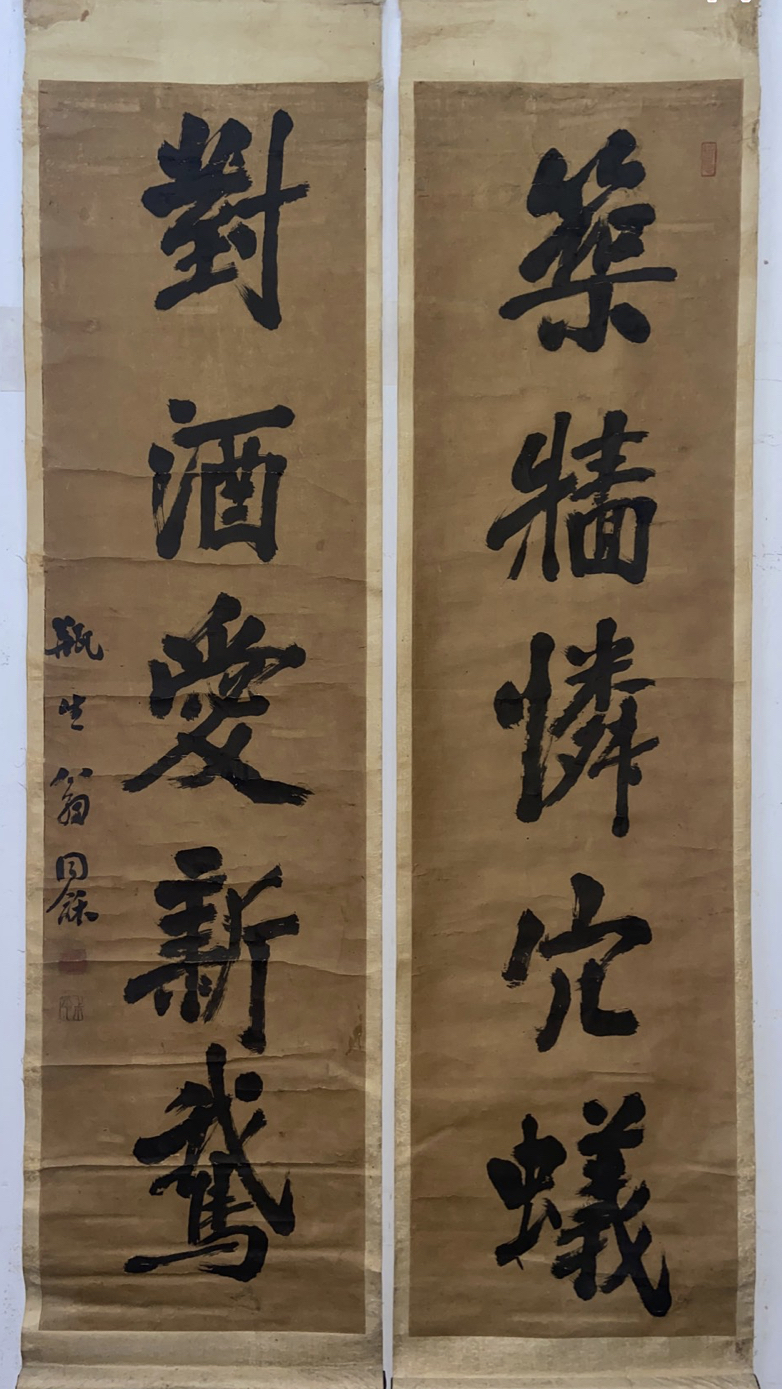 築牆憐穴蟻
對酒愛新鵞
瓶生翁同龢